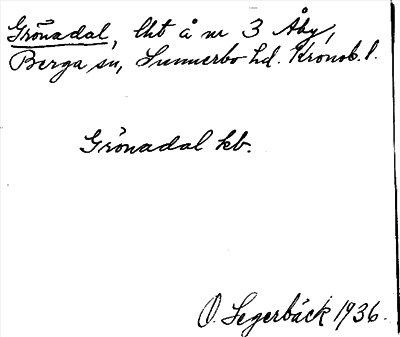 Grönadal, lht å nr 3 Åby,
Berga sn, Sunnerbo hd. Kronob. l.
Grönadal kb.
O. Segerbäck 1936.